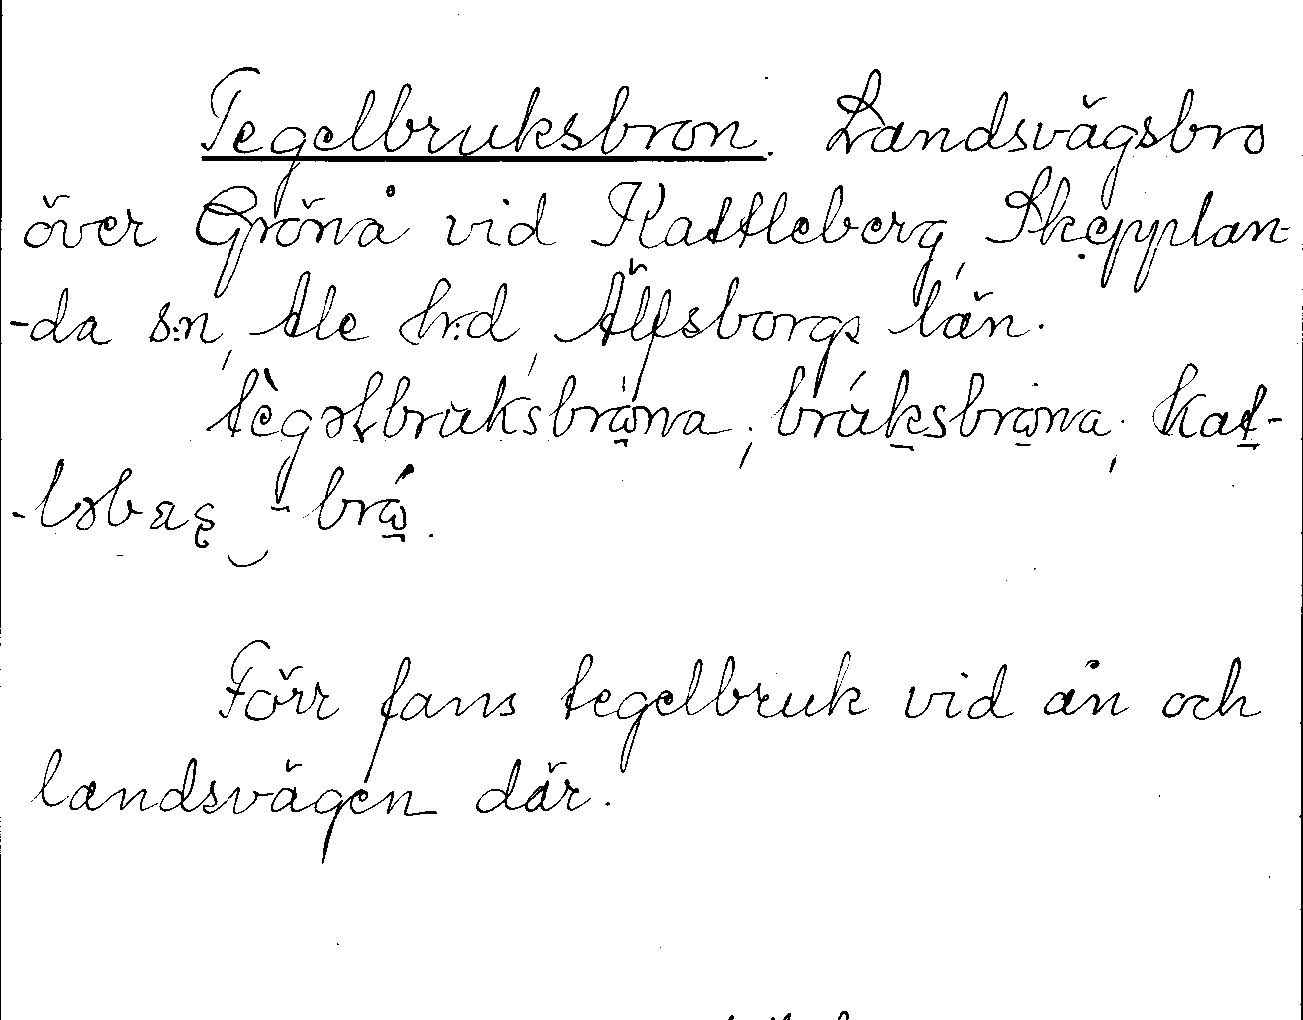 Tegelbruksbron. Landsvägsbro
över Grönå vid Kattleberg, Skepplan-
-da s:n, Ale h:d, Älfsborgs län.
tègəlbruksbrωna; brúksbrωna; kat-
-ləbærg - brώ.
Förr fans tegelbruk vid ån och
landsvägen där.